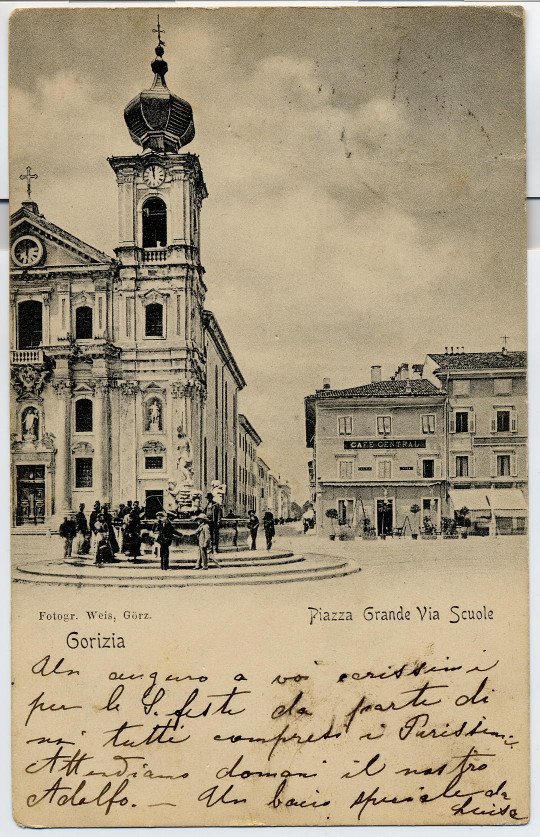 CAFE CENTRAL
Fotogr. Weis, Görz.
Piazza Grande Via Scuole
Gorizia
Un auguro a voi carissimi
per le S. feste da parte di
noi tutti compresi i Parissini
Attendiamo domani il nostro
Adolfo. — Un bacio speciale da
Luisa